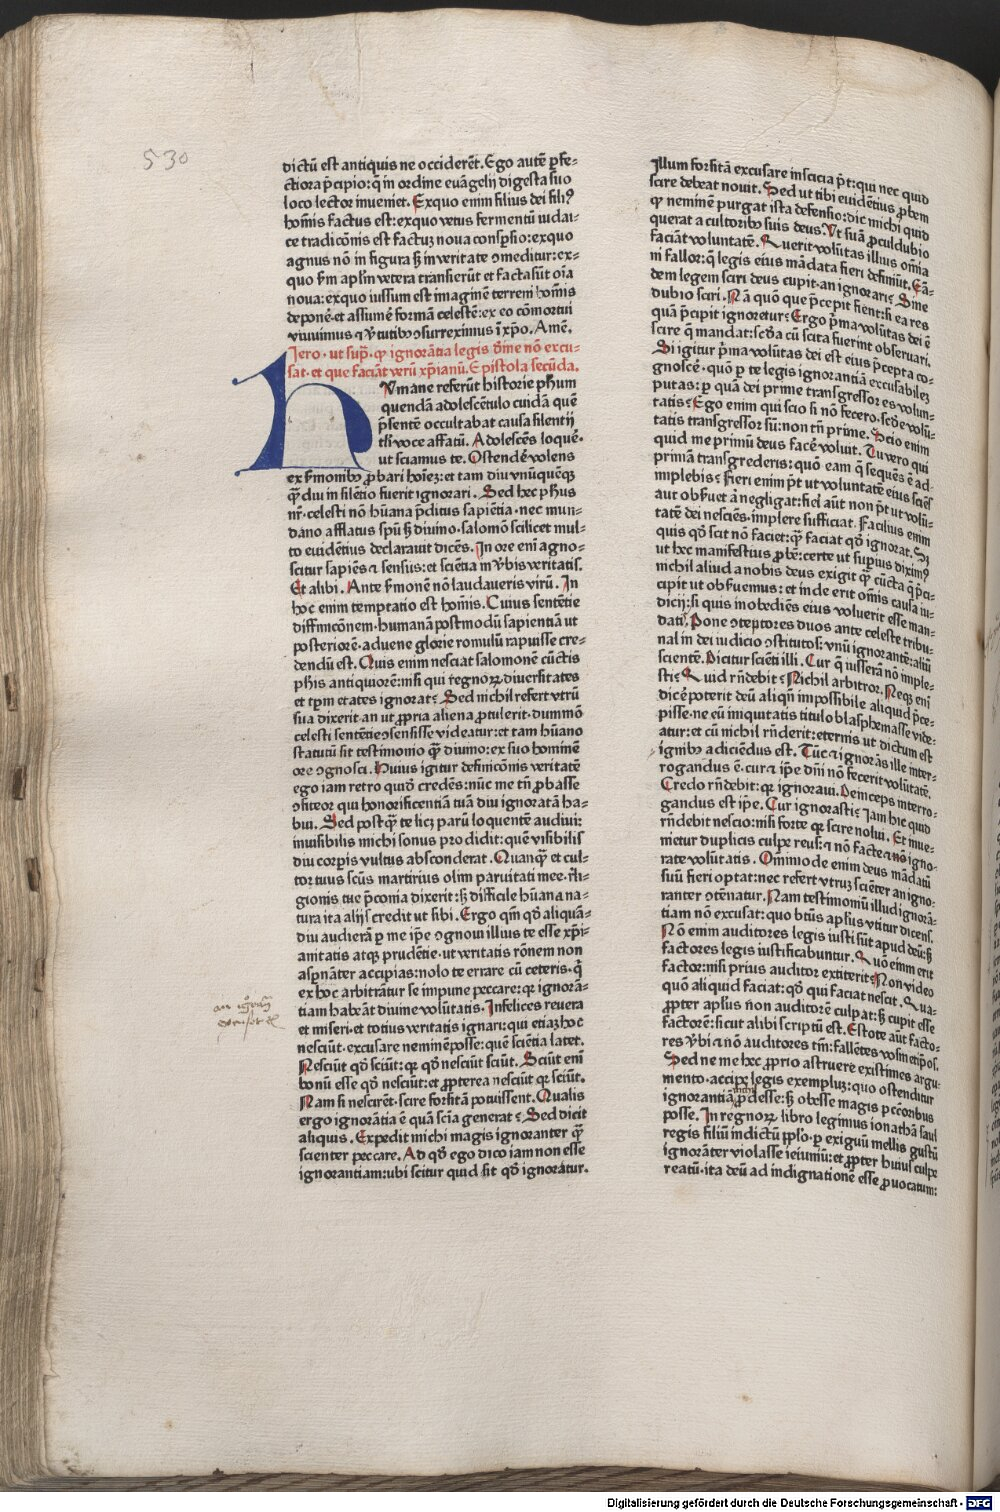 530
dictū est antiquis ne occiderēt. Ego autē ꝑfe⸗
ctiora p̄cipio: q̄ in ordine euāgelij digesta suo
loco lector inueniet. Exquo enim filius dei filiꝰ
hoīnis factus est: exquo vetus fermentū iudai⸗
ce tradicōnis est factuꝫ noua consꝑsio: exquo
agnus nō in figura sꝫ in veritate ꝯmeditur: ex⸗
quo scḋm aplm vetera transierūt et facta sūt oīa
noua: exquo iussum est imaginē terreni hoīnis
deponeꝛ et assumeꝛ formā celestē: ex eo cōmortui
viuimus
Iero. ut supꝛ. ꝙ ignorātia legis dr̄ne nō excu⸗
sat. et que faciāt verū xp̄ianū. Epistola secūda.
HVmane referūt historie ph̄um
quendā adolescētulo cuidā quē
p̄sentē occultabat causa silentij
tli voce affatū. Adolescēs loqueꝛ.
ut sciamus te. Ostendeꝛ volens
ex s̄monibꝰ ꝓbari hoīeꝫ: et tam diu vnūquēqꝫ
qꝫ diu in silētio fuerit ignorari. Sed hec ph̄us
nr̄. celesti nō hūana p̄ditus sapiētia. nec mun⸗
dano afflatus spū sꝫ diuino. salomō scilicet mul⸗
to euidētius declarauit dicēs. In ore eni agno⸗
scitur sapiēs ⁊ sensus: et sciētia in v̄bis veritatis.
Et alibi. Ante s̄monē nō laudaueris virū. In
hoc enim temptatio est hoīnis. Cuius sentētie
diffinicōnem. humanā postmodū sapientiā ut
posteriorē. aduene glorie romulū rapuisse cre⸗
dendū est. Quis enim nesciat salomonē cūctis
ph̄is antiquiorē: nisi qui regnoꝝ diuersitates
et tp̄m etates ignorat? Sed nichil refert vtrū
sua dixerit. an ut ꝓpria aliena ꝓtulerit. dummō
celesti sentētie ꝯsensisse videatur: et tam hūano
statutū sit testimonio qꝫ diuino: ex suo hominē
ore ꝯgnosci. Huius igitur definicōnis veritatē
ego iam retro quidē credēs: nūc me tn̄ ꝓbasse
ꝯfiteor qui honorificentiā tuā diu ignoratā ha⸗
bui. Sed postqꝫ te licꝫ parū loquentē audiui:
inuisibilis michi sonus prodidit: quē visibilis
diu corpis vultus absconderat. Quanqꝫ et cul⸗
tor tuus scūs martirius olim paruitati mee. r̄li⸗
gionis tue p̄conia dixerit: sꝫ difficile hūana na⸗
tura ita alijs credit ut sibi. Ergo qm̄ qd̄ aliquā⸗
diu audierā ꝑ me ip̄e ꝯgnoui illius te esse xp̄i⸗
anitatis atqꝫ prudētie. ut veritatis rōnem non
aspnāter accipias: nolo te errare cū ceteris. q̄
ex hoc arbitrātur se impune peccare: qꝛ ignorā⸗
tiam habeāt diuine volūtatis. Infelices reuera
et miseri. et totius veritatis ignari: qui etiaꝫ hoc
nesciūt. excusare neminē posse: quē sciētia latet.
Nesciūt qd̄ sciūt: qꝛ qd̄ nesciūt sciūt. Sciūt eni
bonū esse qd̄ nesciūt: et ꝓpterea nesciūt qꝛ sciūt.
Nam si nescirēt. scire forsitā potuissent. Qualis
ergo ignorātia ē quā scīa generat? Sed dicit
aliquis. Expedit michi magis ignoranter qꝫ
scienter peccare. Ad qd̄ ego dico iam non esse
ignorantiam: ubi scitur quid sit qd̄ ignorātur.
Illum forsitā excusare inscicia p̄t: qui nec quid
scire debeat nouit. Sed ut tibi euidētius ꝓbem
ꝙ neminē purgat ista defensio: dic michi quid
querat a cultoribꝰ suis deus. Vt suā ꝓculdubio
faciāt voluntatē. Querit volūtas illius om̄ia
ni fallor: q̄ legis eius mādata fieri definiūt. Eā⸗
dem legem sciri deus cupit. an ignorari? Sine
dubio sciri. Nā quō que p̄cepit fient: si ea res
quā p̄cipit ignoretur? Ergo p̄ma volūtas dei ē
scire q̄ mandat: secḋa cū scita fuerint obseruari.
Si igitur p̄ma volūtas dei est eius p̄cepta co⸗
gnosceꝛ. quō ꝑ te legis ignorantiā excusabileꝫ
putas: ꝑ quā dei prime transgressor es volun⸗
tatis? Ego enim qui scio si nō fecero. secḋe volū⸗
tatis transgressor sū: non tn̄ prime. Scio enim
quid me primū deus faceꝛ voluit. Tu vero qui
primā transgrederis: quō eam q̄ sequēs ē ad⸗
implebis? Fieri enim p̄t ut voluntatē eius sciēs
aut obs̄uet aut negligat: fieri aūt non p̄t ut volū⸗
tatē dei nesciēs. implere sufficiat. Facilius enim
quis qd̄ scit nō faciet: qꝫ faciat qd̄ ignorat. Sꝫ
ut hec manifestius ꝓbeꝛ: certe ut supius diximꝰ
nichil aliud a nobis deus exigit qꝫ cūcta q̄ p̄ci⸗
cipit ut obs̄uemus: et inde erit om̄is causa iu⸗
dicij: si quis inobediēs eius voluerit esse man⸗
datis. Pone ꝯteptores duos ante celeste tribu⸗
nal in dei iudicio ꝯstitutos: vnū ignorantē: aliū
scientē. Dicitur sciēti illi. Cur q̄ iusserā nō imple⸗
sti? Quid rn̄debit? Nichil arbitror. Neqꝫ eni
diceꝛ poterit deū aliqn̄ impossibile aliquid p̄ce⸗
pisse. ne eū iniquitatis titulo blasphemasse vide⸗
atur: et cū nichil rn̄derit: eternis ut dictum est
ignibꝰ adiciendus est. Tūc ⁊ ignorās ille inter⸗
rogandus ē. cur ⁊ ip̄e dn̄i nō fecerit volūtatē.
Credo rn̄debit: qꝛ ignoraui. Deinceps interro⸗
gandus est ip̄e. Cur ignorasti? Iam hic quid
rn̄debit nescio: nisi forte qꝛ scire nolui. Et inue⸗
nietur duplicis culpe reus: ⁊ nō facte ⁊ nō igno⸗
rate volūtatis. Om̄imode enim deus mādatū
suū fieri optat: nec refert vtruꝫ sciēter an igno⸗
ranter ꝯtēnatur. Nam testimoniū illud ignorā⸗
tiam nō excusat: quo btūs apl̄us vtitur dicens.
Nō enim auditores legis iusti sūt apud deū: sꝫ
factores legis iustificabuntur. Quō enim erit
factor: nisi prius auditor extiterit? Non video
quō aliquid faciat: qd̄ qui faciat nescit. Qua⸗
ꝓpter apl̄us non auditorē culpat: sꝫ cupit esse
factorē: sicut alibi scriptū est. Estote aūt facto⸗
res v̄bi ⁊ nō auditores tm̄: fallētes vosmetip̄os.
Sed ne me hec ꝓprio astruere existimes argu⸗
mento. accipe legis exempluꝫ: quo ostenditur
ignorantiā ꝓdesse: sꝫ obesse magis pccōribus
posse. In regnoꝝ libro legimus ionathā saul
regis filiū indictū ꝑ ip̄so. ꝑ exiguū mellis gustū
ignorāter violasse ieiuniū: et ꝓpter huius culpe
reatū. ita deū ad indignationē esse ꝓuocatum:
Digitalisierung gefördert durch die Deutsche Forschungsgemeinschaft - DFG